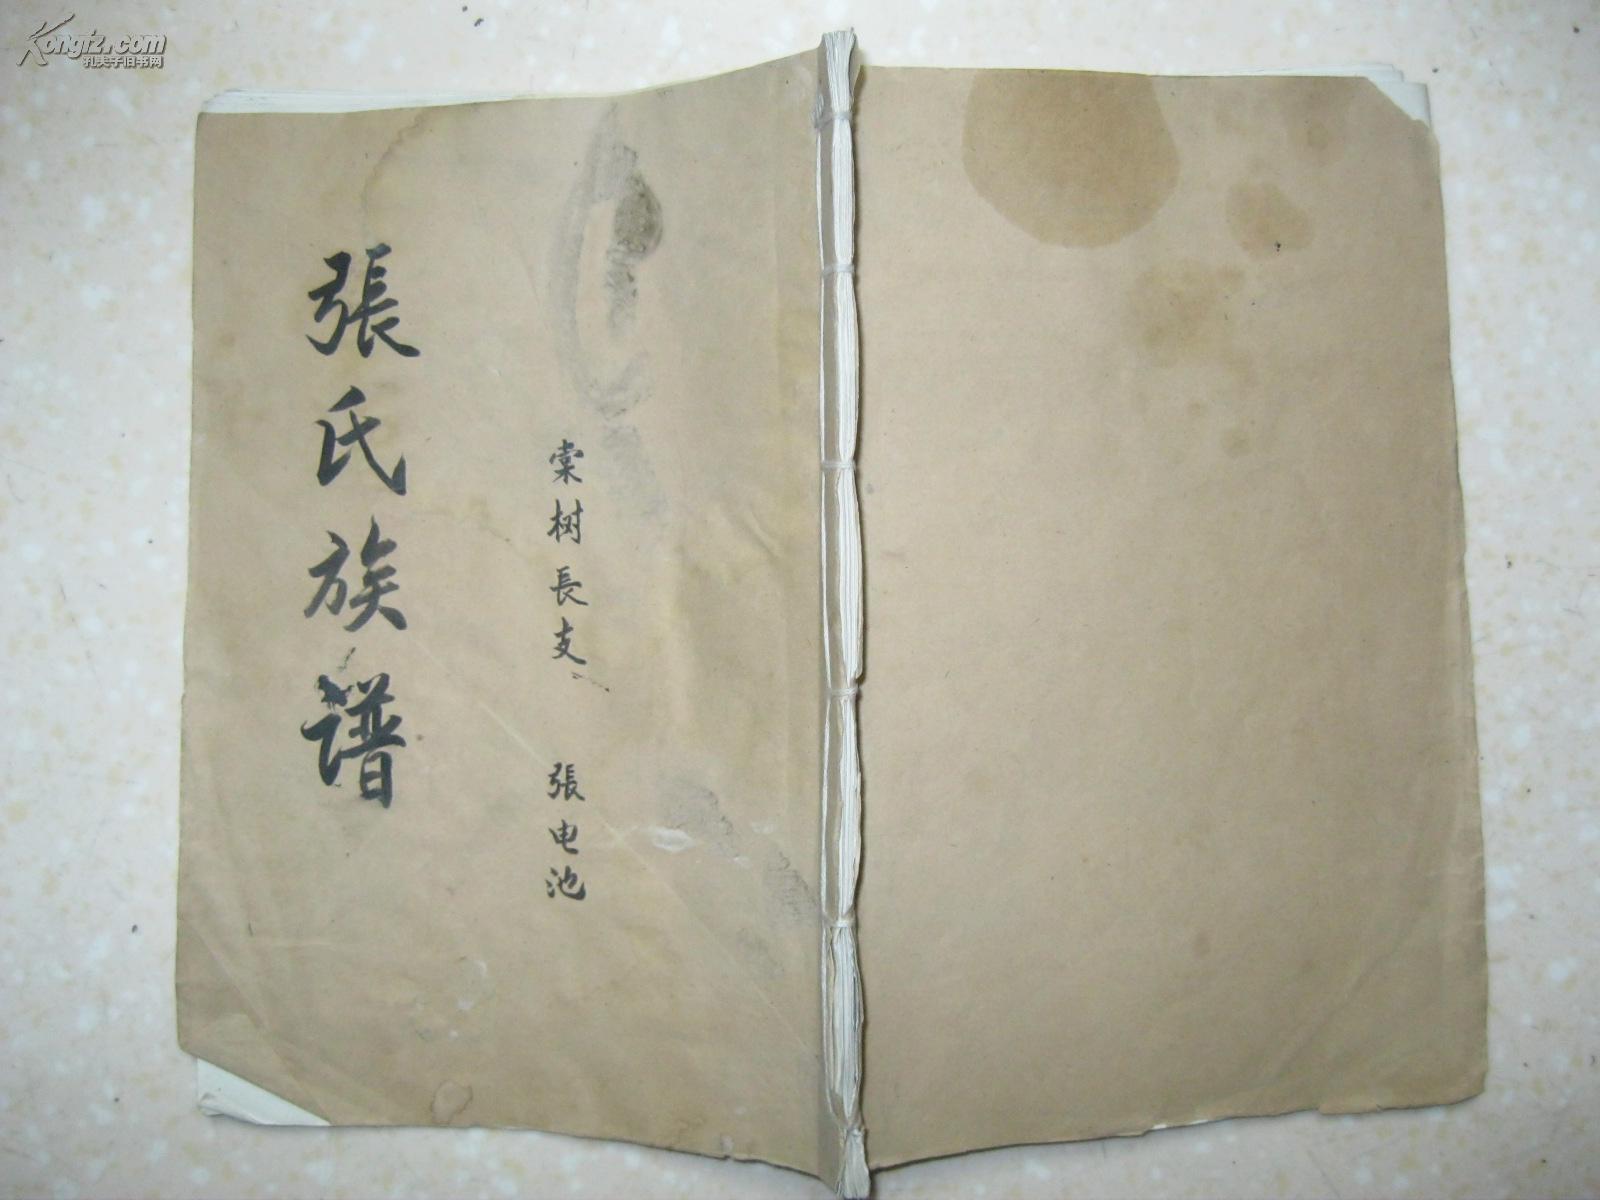 Kongfz.com
孔夫子旧书网
張氏族譜
棠树長支 張电池